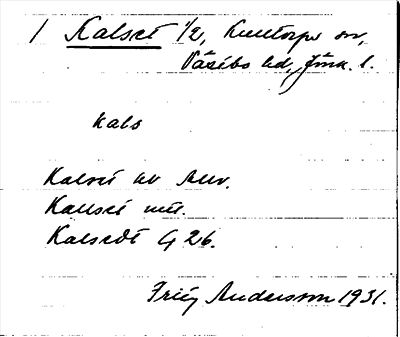 1 Kalset 1/2, Kulltorps sn,
Västbo hd, Jönk. l.
kals
Kalset
Kallset
Kalsedt G 26.
Fritz Andersson 1931.